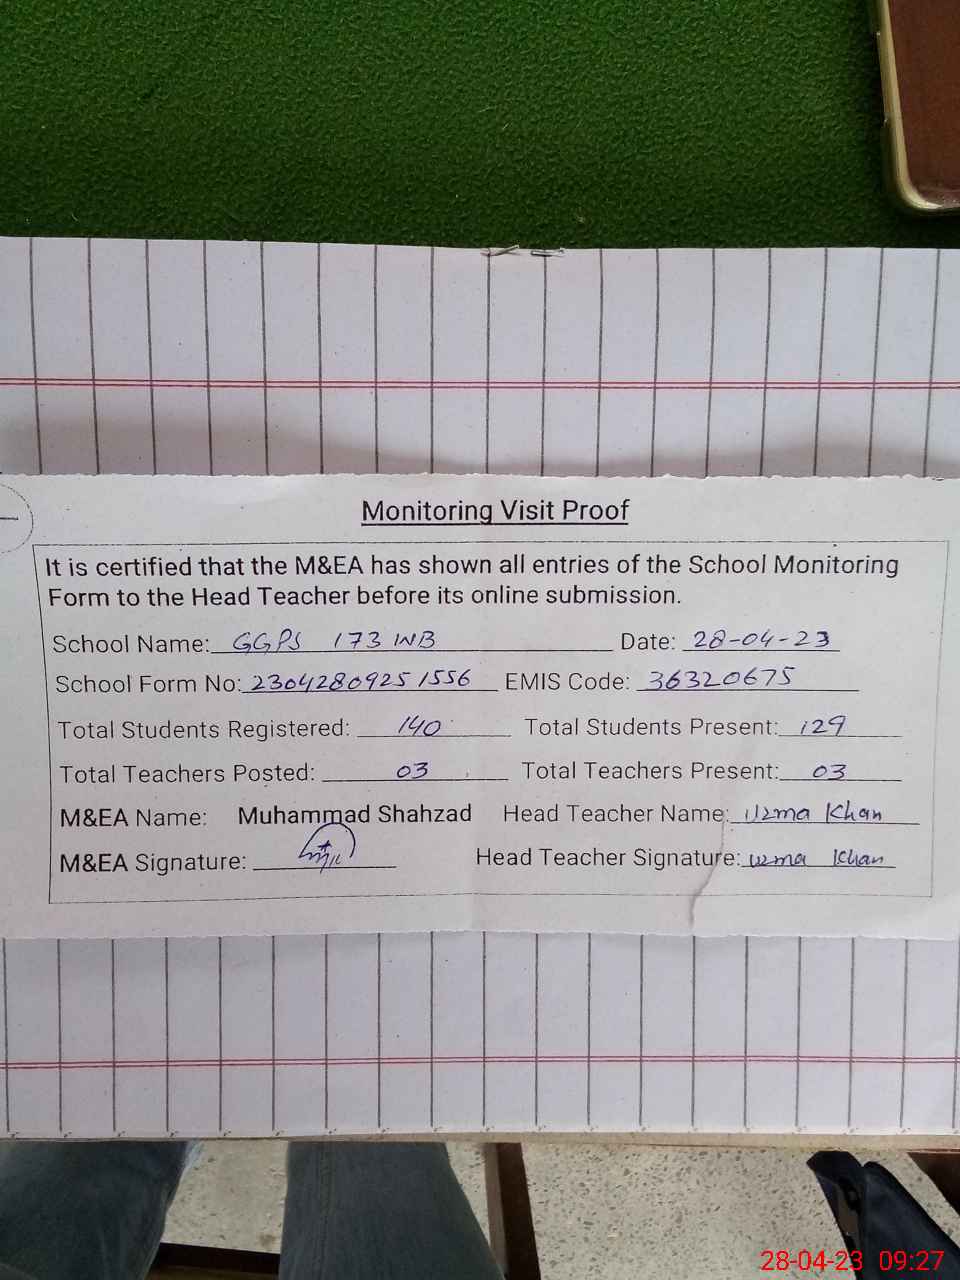 Monitoring Visit Proof
It is certified that the M&EA has shown all entries of the School Monitoring
Form to the Head Teacher before its online submission.
School Name: GGPS 173 WB Date: 28-04-23
School Form No: 23042809251556 EMIS Code: 36320675
Total Students Registered: 140 Total Students Present: 129
Total Teachers Posted: 03 Total Teachers Present: 03
M&EA Name: Muhammad Shahzad Head Teacher Name: Uzma Khan
M&EA Signature: Head Teacher Signature: uzma Khan
28-04-23 09:27